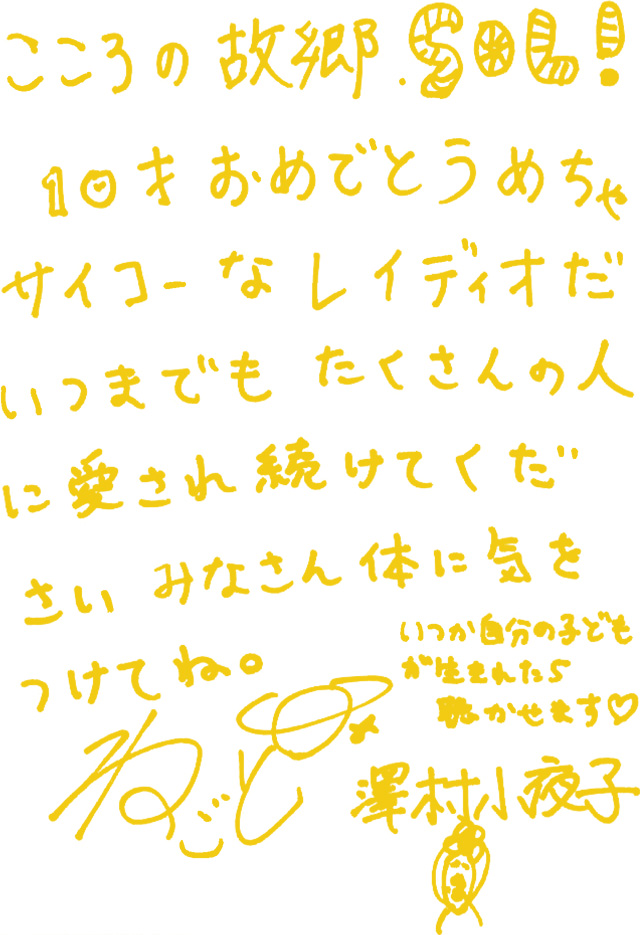 こころの故郷.SOL!
10才おめでとうめちゃ
サイコーなレイディオだ
いつまでも たくさんの人
に愛され続けてくだ
さい みなさん体に気を
つけてね。
いつか自分の子ども
が生まれたら
聴かせます♡
ねごと
澤村小夜子